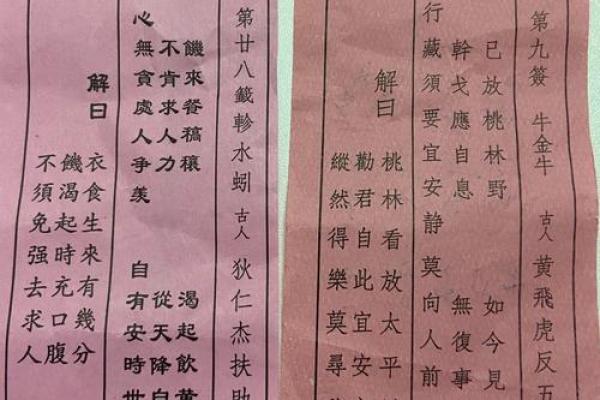 第九簽 牛金牛 古人 黃飛虎反五
已放桃林野 如今見
幹戈應自息 無復事
行藏須要宜安靜 莫向人前
解曰
桃林看放太平
勸君自此宜安
縱然得樂莫尋
第廿八籤軫水蚓 古人 狄仁杰扶助
饑來餐稿穰 渴起飲黃
不肯求人力 從天降
心無貪處人爭羨 自有安時世
解曰
衣食生來有幾分
饑渴起時充口腹
不須免强去求人